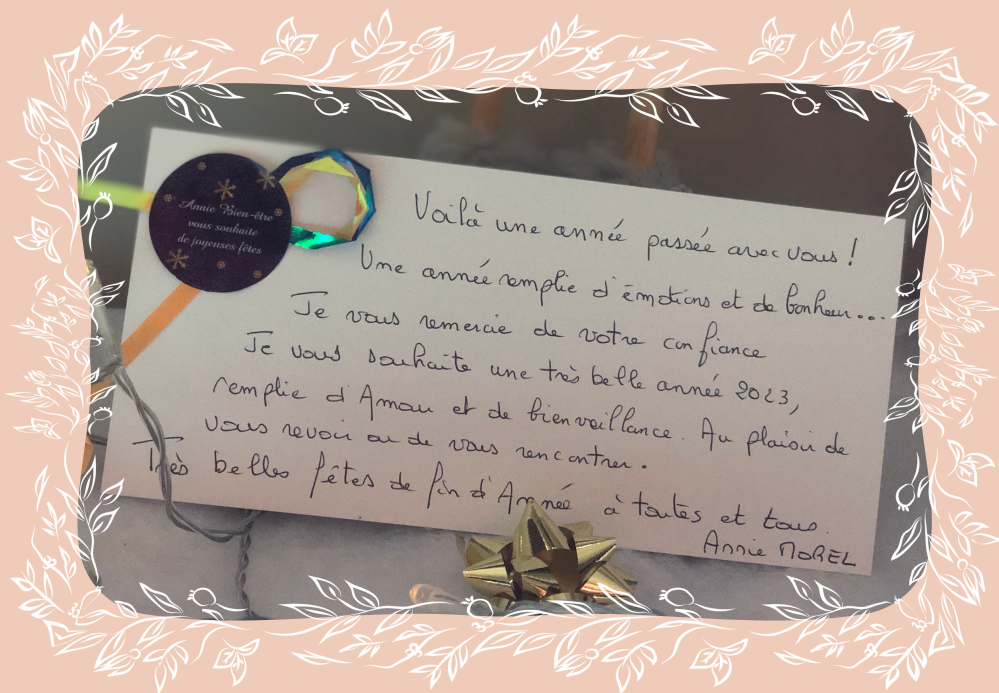 Annie Bien-être
vous souhaite
de joyeuses fêtes
Voilà une année passée avec vous !
Une année remplie d'émotions et de bonheur...
Je vous remercie de votre confiance
Je vous souhaite une très belle année 2023,
remplie d'Amour et de bienveillance. Au plaisir de
vous revoir ou de vous rencontrer.
Très belles fêtes de fin d'Année à toutes et tous.
Annie MOREL